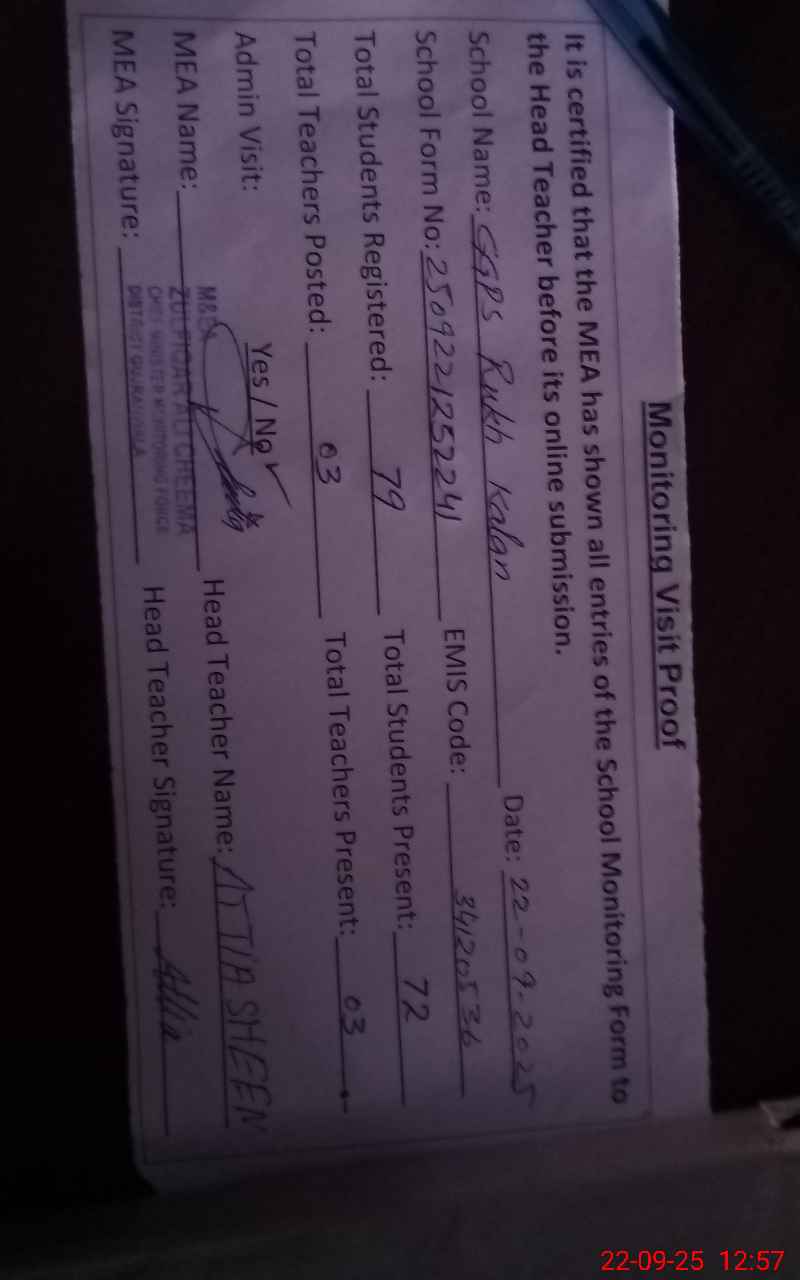 Monitoring Visit Proof
It is certified that the MEA has shown all entries of the School Monitoring Form to
the Head Teacher before its online submission.
School Name: GGPS Rukh Kalan Date: 22-09-2025
School Form No: 2509221252241 EMIS Code: 34120536
Total Students Registered: 79 Total Students Present: 72
Total Teachers Posted: 03 Total Teachers Present: 03
Admin Visit: Yes / No ✓
MEA Name: Head Teacher Name: ATTIA SHEEN
MEA Signature: Head Teacher Signature: Attia
CHIEF MINISTER MONITORING FORCE
22-09-25 12:57